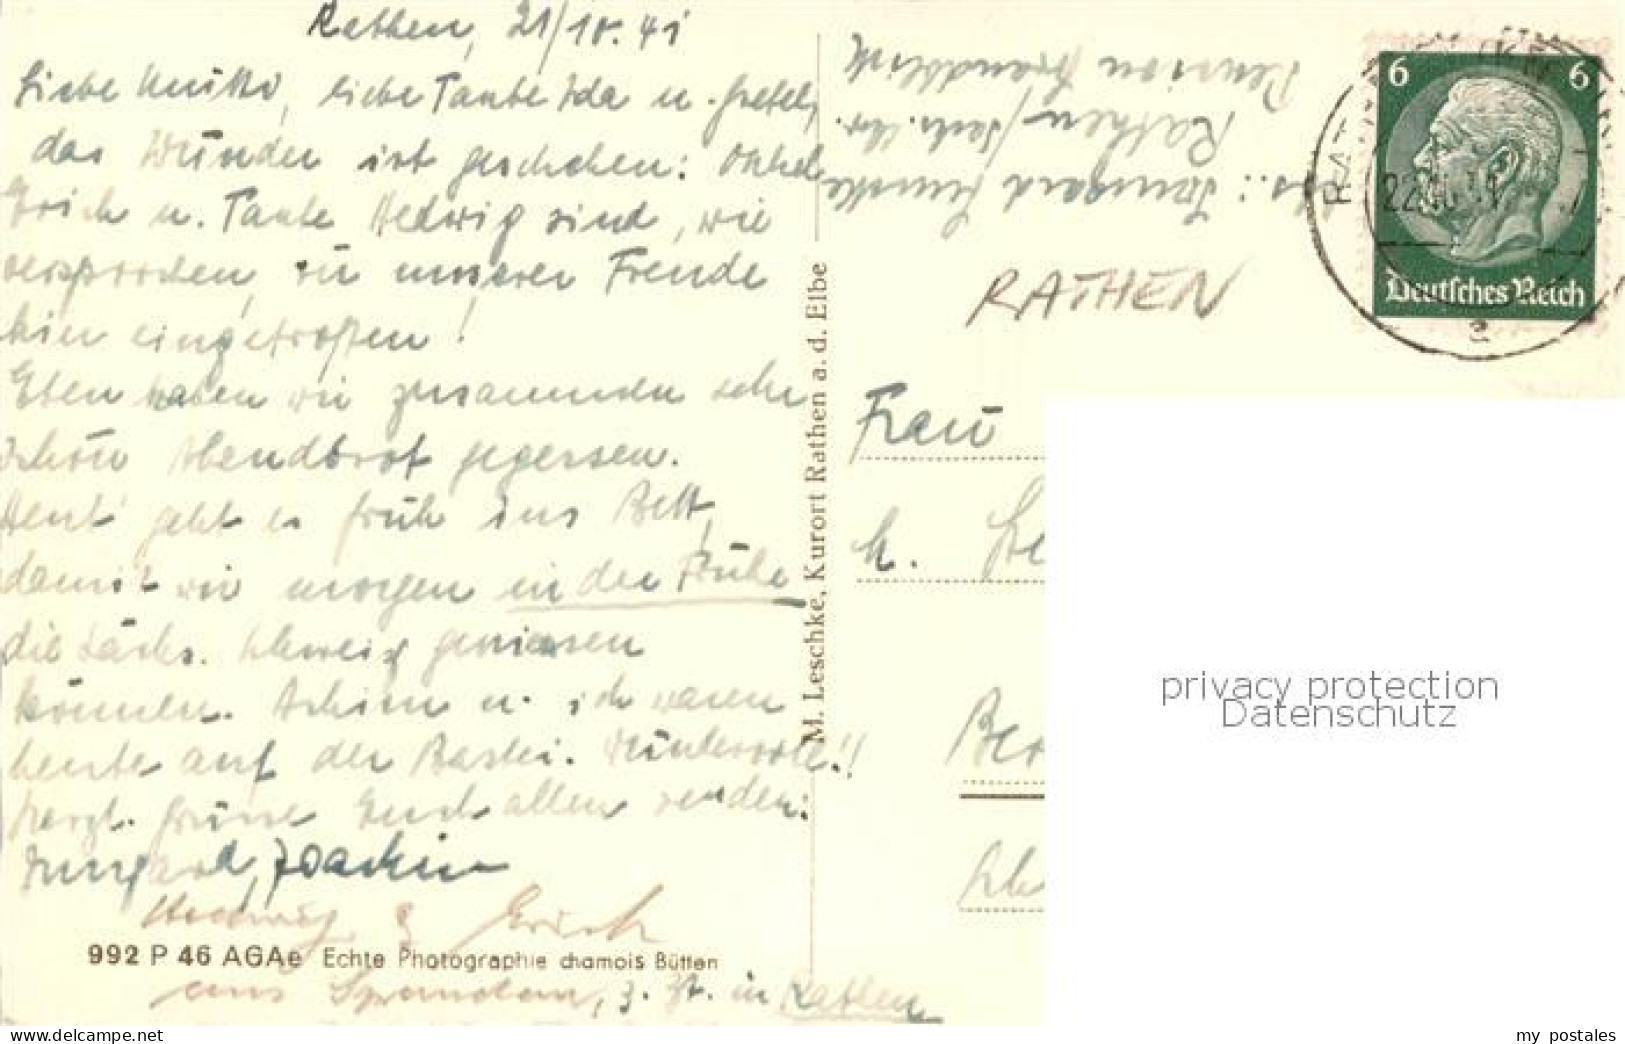 Rathen, 21/10. 41
Liebe Mutti, liebe Tante Ida u. Gretel,
das Wunder ist geschehen: Onkel
Erich u. Tante Hedwig sind, wie
versprochen, zu unserer Freude
hier eingetroffen!
Eben haben wir zusammen sehr
schön Abendbrot gegessen.
Heut' geht es früh ins Bett,
damit wir morgen in der Frühe
die Sächs. Schweiz geniessen
können. Achim u. ich waren
heute auf der Bastei. Wundervoll!!
Herzl. Grüsse Euch allen senden:
Irmgard, Joachim
Hedwig & Erich
aus Spandau, z. Zt. in Rathen
992 P 46 AGAe Echte Photographie chamois Bütten
M. Leschke, Kurort Rathen a. d. Elbe
Abs.: Irmgard
Rathen / Sächs. Schw.
Pension
RATHEN
6 6
Deutsches Reich
RAT
22.10.41
a
Frau
b.
Ber
privacy protection
Datenschutz
www.delcampe.net
my_postales